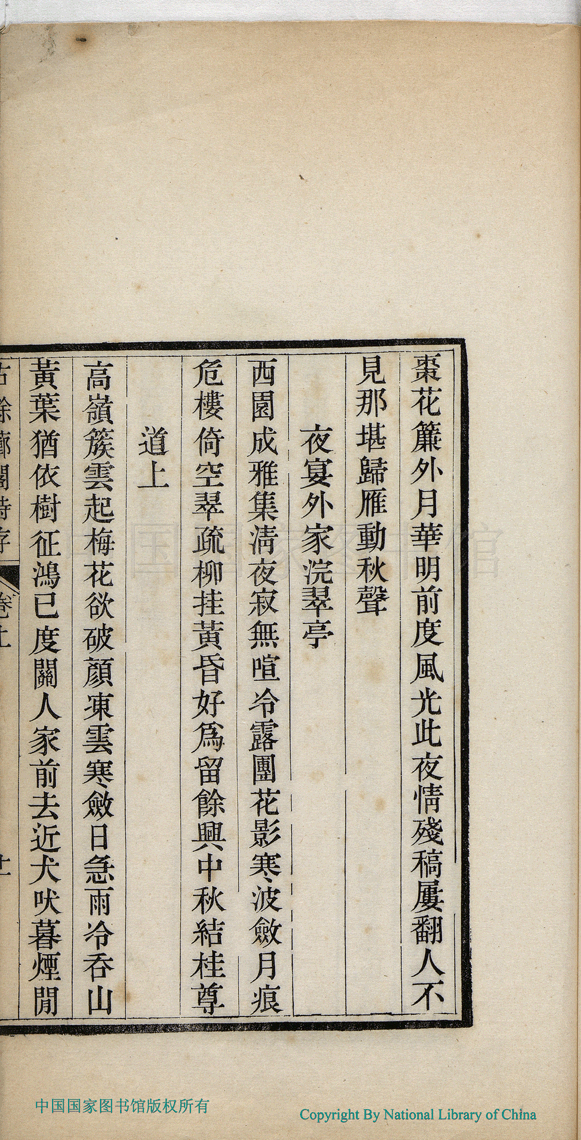 棗花簾外月華明前度風光此夜情殘稿屢翻人不
見那堪歸雁動秋聲
夜宴外家浣翠亭
西園成雅集清夜寂無喧冷露團花影寒波斂月痕
危樓倚空翠疏柳挂黃昏好爲留餘興中秋結桂尊
道上
高嶺簇雲起梅花欲破顏凍雲寒斂日急雨冷吞山
黃葉猶依樹征鴻已度關人家前去近犬吠暮煙閒
中国国家图书馆
中国国家图书馆版权所有
Copyright By National Library of China